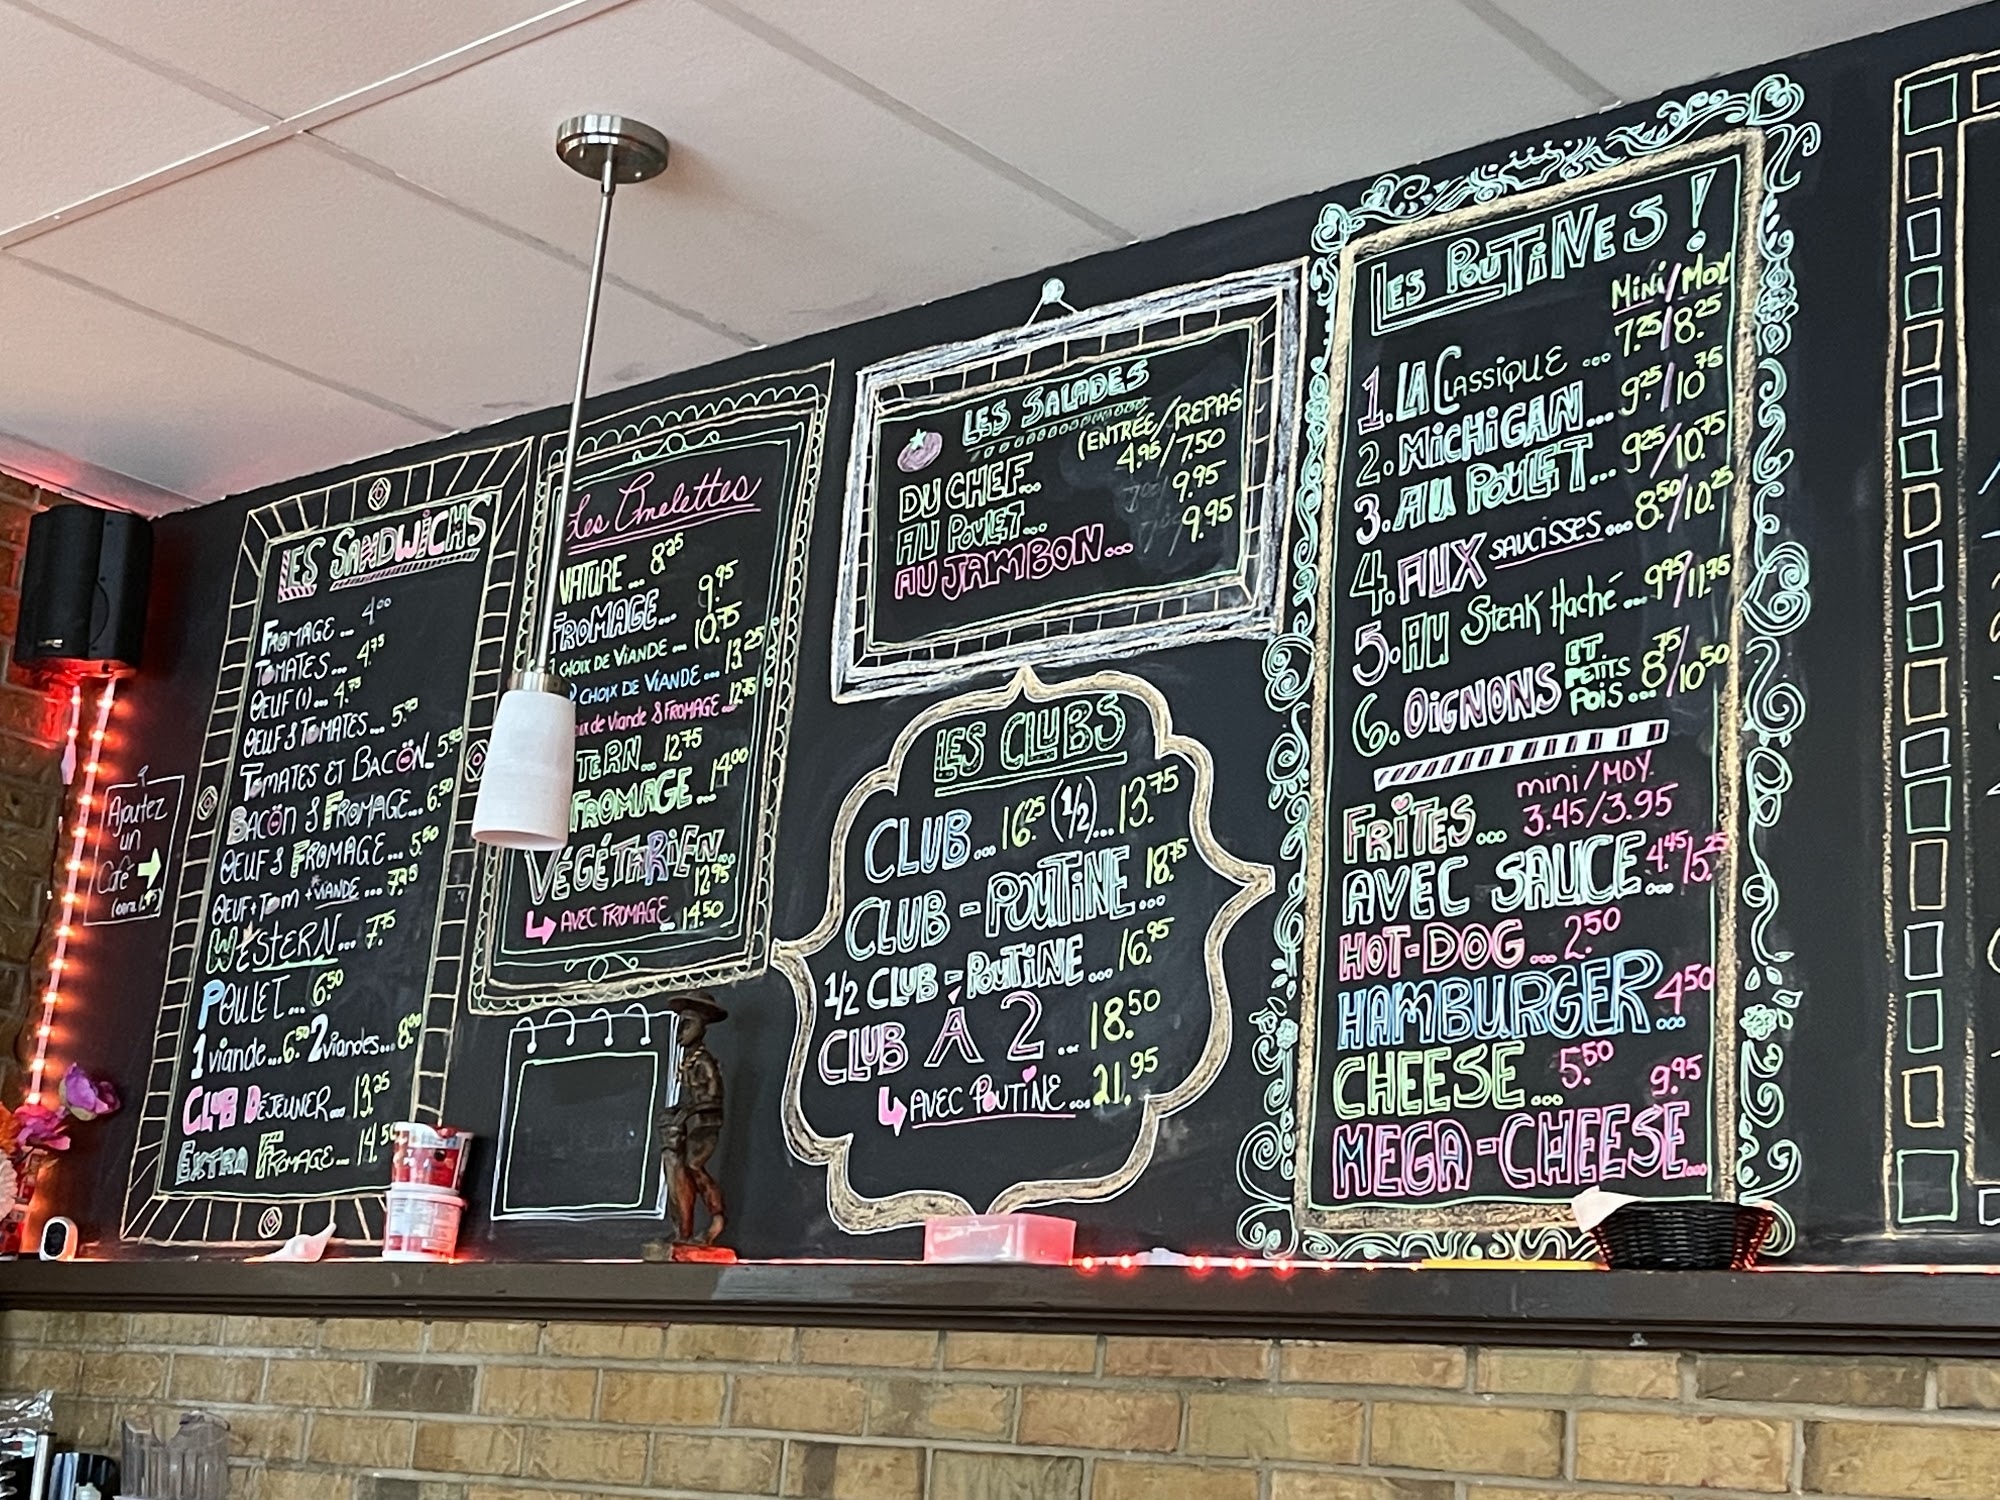 Ajoutez
un
Café
LES SANDWICHS
FROMAGE... 4.00
TOMATES... 4.75
OEUF (1)... 4.75
OEUF & TOMATES...
TOMATES ET BACÖN... 5.95
BACÖN & FROMAGE... 6.50
OEUF & FROMAGE... 5.50
OEUF + TOM + VIANDE...
WESTERN... 7.75
POULET... 6.50
1 viande... 6.50 2 viandes... 8.00
CLUB DÉJEUNER... 13.25
EXTRA FROMAGE... 14.50
Les Omelettes
NATURE... 8.25
FROMAGE... 9.95
CHOIX DE VIANDE... 10.75
CHOIX DE VIANDE... 13.25
de Viande & FROMAGE... 12.75
TERN... 12.75
FROMAGE... 14.00
VÉGÉTARIEN...
12.95
AVEC FROMAGE... 14.50
LES SALADES
(ENTRÉE/REPAS
DU CHEF... 4.95/7.50
AU POULET... 9.95
AU JAMBON... 9.95
LES CLUBS
CLUB... 16.25 (1/2)... 13.75
CLUB - POUTINE... 18.75
1/2 CLUB - POUTINE... 16.95
CLUB À 2... 18.50
AVEC POUTINE... 21.95
LES POUTINES!
MINI/MOY
1. LA CLASSIQUE... 7.25/8.25
2. MICHIGAN... 9.25/10.75
3. AU POULET... 9.25/10.75
4. AUX SAUCISSES... 8.50/10.25
5. AU STEAK Haché... 9.95/11.75
6. OIGNONS ET PETITS POIS... 8.75/10.50
mini/MOY.
FRITES... 3.45/3.95
AVEC SAUCE... 4.45/5.25
HOT-DOG... 2.50
HAMBURGER... 4.50
CHEESE... 5.50
MEGA-CHEESE... 9.95